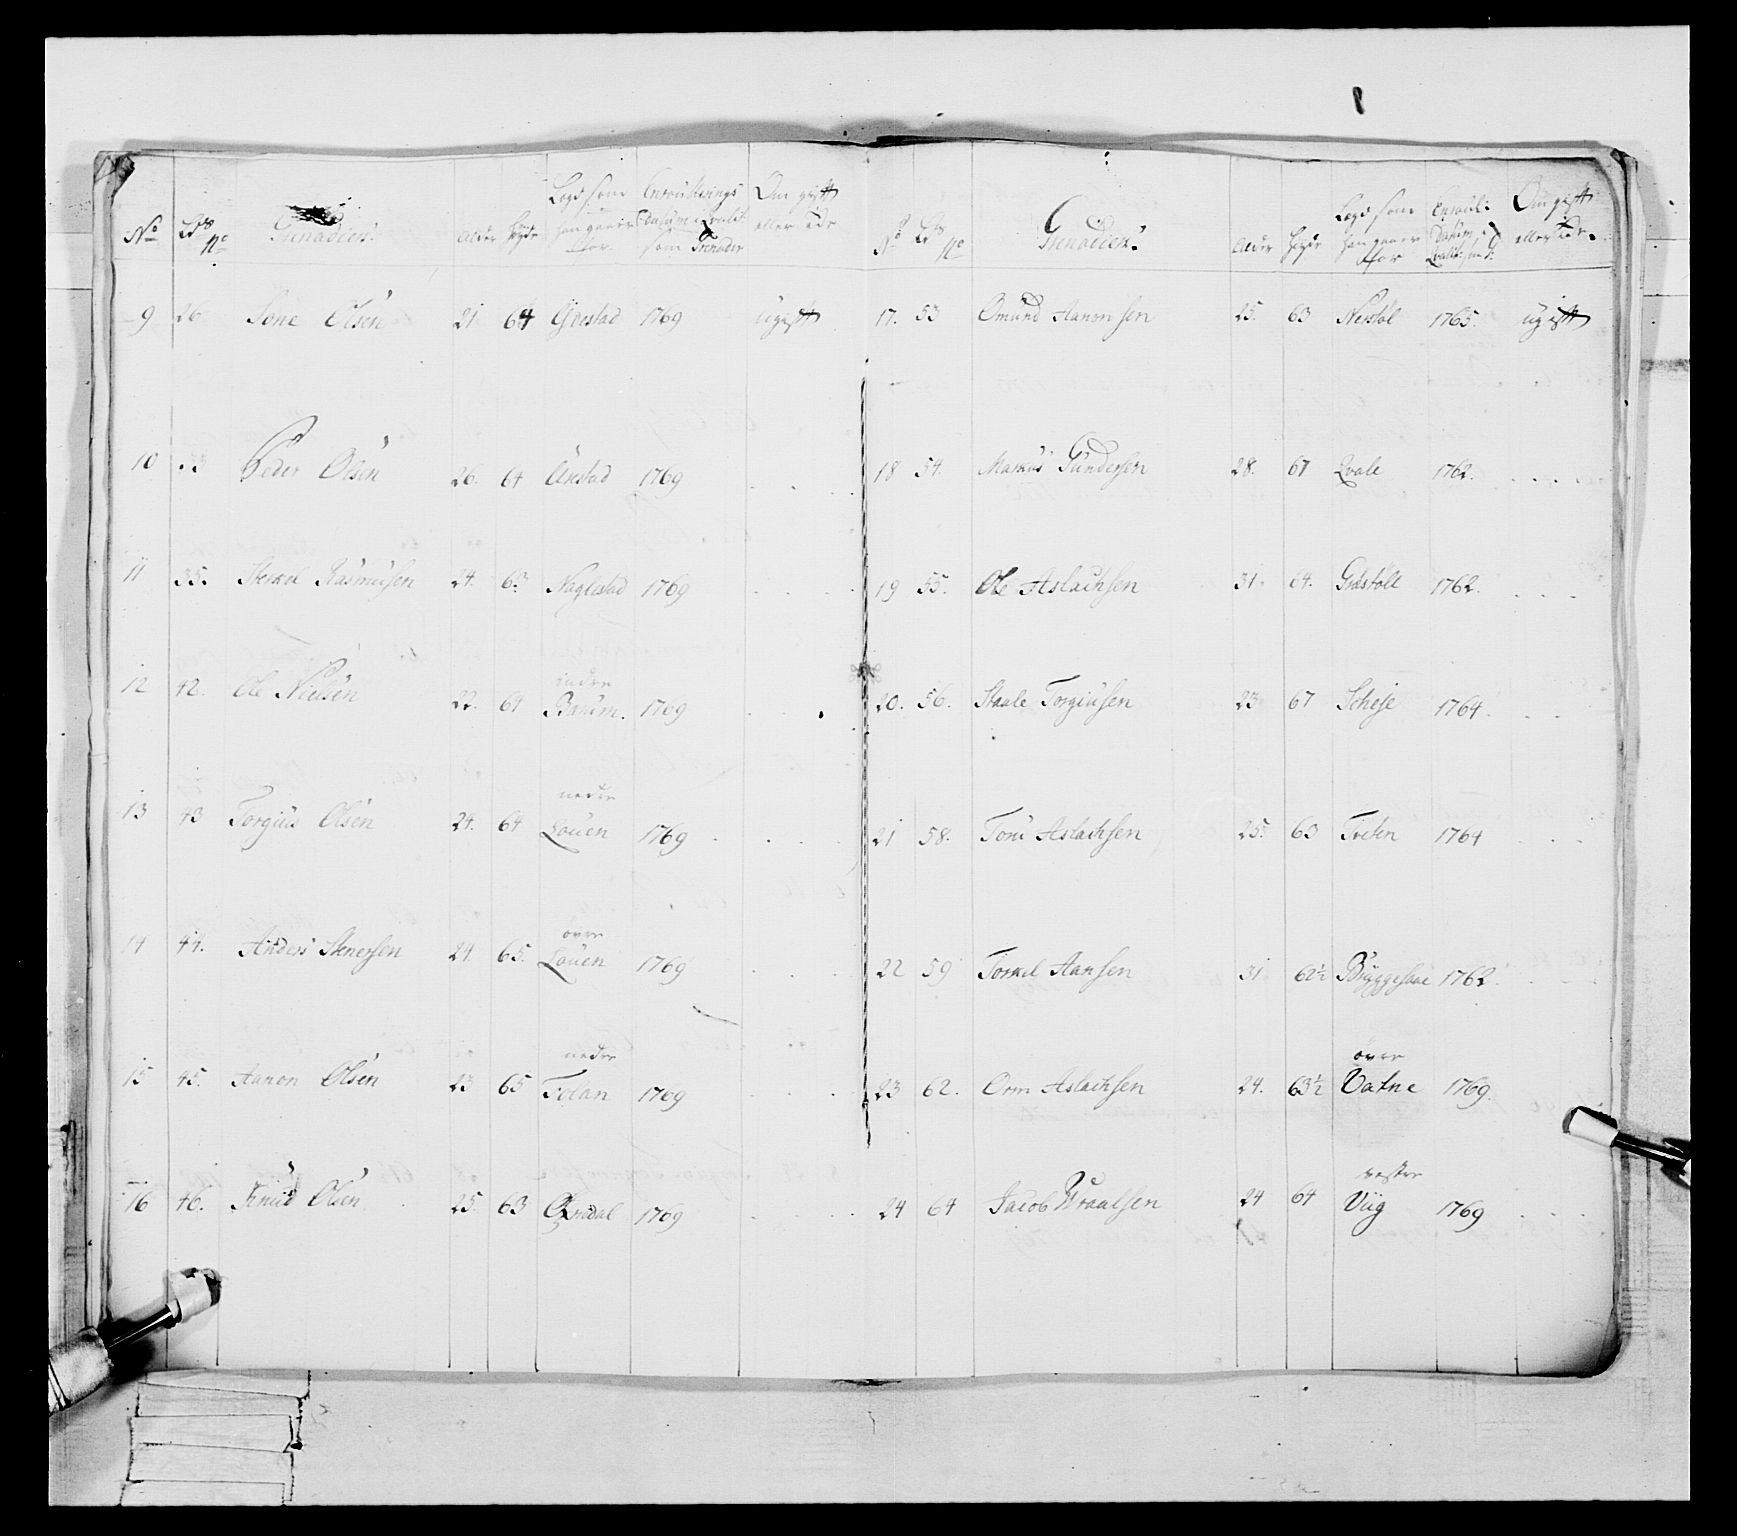 No Lds No Grenadier. Alder Høyde Lægd som han gaaer for Enroullerings Datum & Qvalit: som Grenader Om gift eller Ede
9 26 Tone Olsen 21 64 Gyvestad 1769 ugift
10 Peder Olsen 26. 64 Unstad 1769
11 35. Sterkel Rasmusen 24. 63 Naglestad 1769
12 42. Ole Nielsen 22. 64 indre Baaum. 1769
13 43 Torgius Olsen 24. 64 nedre Louen 1769
14 44. Anders Stenersen 24. 65. øvre Louen 1769
15 45. Aanon Olsen 23 65 nedre Tolan 1769
16 46. Knud Olsen 25. 63 1769
No Lds No Grenadier. Alder Høyde Lægd som han gaaer for Enroul: Datum & Qvalit: Om gift eller Ede.
17. 53 Omund Aanonsen 25. 63 Nerstøl 1765. ugift
18 54. Markus Gundersen 28. 67 Qvale 1762.
19 55. Ole Aslachsen 31. 64. Graastøll 1762.
20. 56. Staale Torgiusen 23 67 Scheje 1764.
21 58. Toru Aslachsen 25. 63 Treten 1764
22 59 Torkel Hansen 31. 62½ Bryggesaae 1762.
23 62. Orm Aslachsen 24. 63½ øvre Vatne 1769.
24 64 Jacob Wraalsen 24 64 vestre Viig 1769